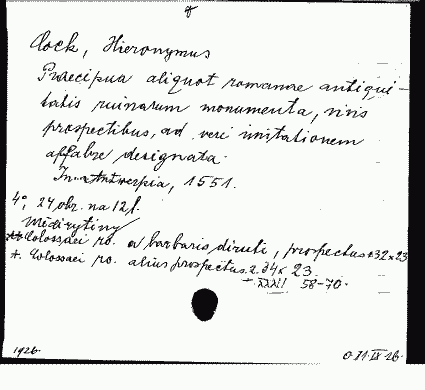 Cock, Hieronymus
Praecipua aliquot romanae antiqui-
tatis ruinarum monumenta, vivis
prospectibus, ad veri imitationem
affabre designata.
In Antwerpia, 1551.
4°, 24 obr. na 12 l.
Mědirytiny
Colossaei ro. a barbaris diruti, prospectus 32 x 23
*. Colossaei ro. alius prospectus. 2. 34 x 23.
XXXII 58-70.
1926.
O 71 IX 26.